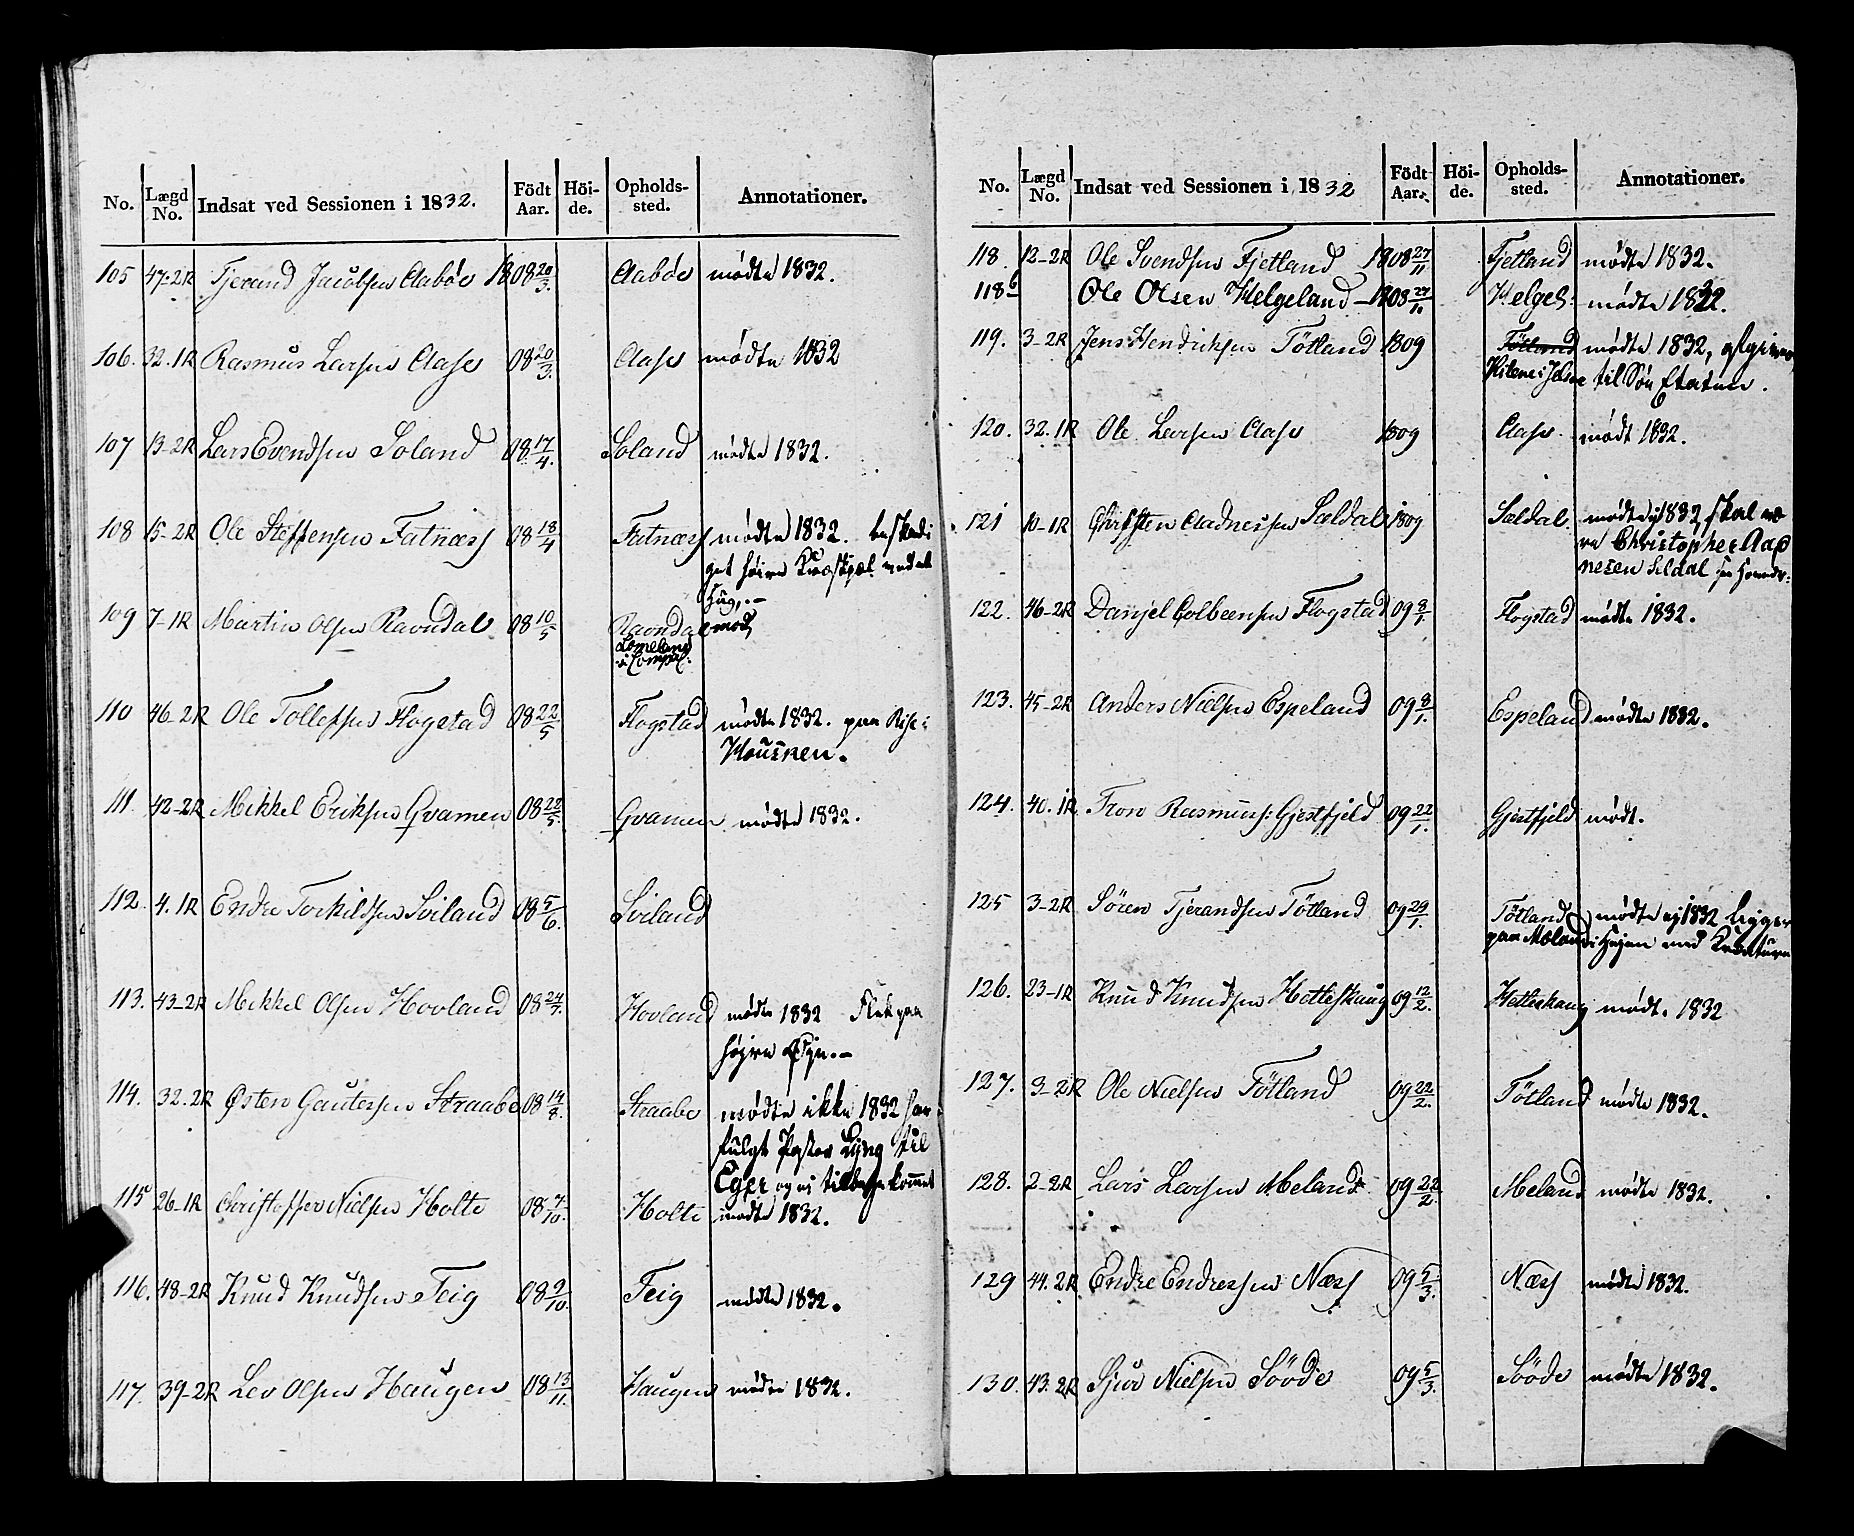 No. Lægd No. Indsat ved Sessionen i 1832. Födt Aar. Höide. Opholdssted. Annotationer.
105 47-2R Tjerand Jacobsen Aabøe 1808 20/3. Aabøe mødte 1832.
106. 32.1R Rasmus Larsen Aase 08 20/3. Aase mødte 1832
107 13-2R Lars Evendsen Soland 08 17/4. Soland mødte 1832.
108 15-2R Ole Steffensen Fatnæss 08 18/4 Fatnæss mødte 1832. beskadi
get høire Knæskjæl ved et
Hug,.-
109 7-1R Martin Olsen Ravndal 08 10/5 Ravndal mød,
110 46-2R Ole Tollefsen Flogstad 08 22/5 Flogstad mødte 1832. paa Rise:
Housken.
111. 42-2R Mikkel Eriksen Qvamen 08 22/5. Qvamen mødte 1832.
112. 4.1R Endre Torkildsen Sviland 08 5/6. Sviland
113. 43-2R Mikkel Olsen Hovland 08 24/7. Hovland mødte 1832 Flek paa
højre Øje.-
114. 32.2R Østen Gautesen Straabe 08 14/8. Straabe mødte ikke 1832 har
fulgt Pastor Lyng til
Eger og ej tilbagekommet
115 26-1R Christopher Nielsen Holte 08 7/10. Holte mødte 1832.
116. 48-2R Knud Knudsen Feig 08 9/10. Feig mødte 1832.
117. 39-2R Lev Olsen Haugen 08 13/11. Haugen mødte 1832.
No. Lægd No. Indsat ved Sessionen i 1832 Födt Aar. Höide. Opholdssted. Annotationer.
118. 12-2R Ole Svendsen Fjetland 1808 27/11 Fjetland mødte 1832.
118 b Ole Olsen Helgeland 1808 27/1. Helgel: mødte 1832.
119. 3-2R Jens Hendriksen Tötland 1809 Tötland mødte 1832, afgiven
til Söe Etaten.
120. 32.1R Ole Larsen Aase 1809 Aase. mødt 1832.
121 10-1R Christen Aadnessen Sældal 1809 Sældal. mødte ej 1832, skal væ
re Christopher Aad
nesen Seldal
122. 46-2R Danjel Colbeensen Flogstad 09 8/1. Flogstad mødte 1832.
123. 45-2R Anders Nielsen Espeland 09 8/1. Espeland mødte 1832.
124. 40.1R Tron Rasmuss: Gjestfjeld 09 22/1. Gjestfjeld mødt.
125 3-2R Sören Tjerandsen Tötland 09 29/1. Tötland mødte ej 1832 ligger
paa Mæland i Hejen med Kreaturne
126. 23-1R Knud Knudsen Hetleskaug 09 12/2. Hetleskaug mødt. 1832
127. 3-2R Ole Nielsen Tötland 09 22/2. Tötland mødte 1832.
128. 2-2R Lars Larsen Meland 09 22/2. Meland mødte 1832.
129 44.2R Endre Endressen Næss 09 5/3. Næss mødte 1832.
130. 43.2R Sjur Nielsen Sööde 09 5/3. Sööde mødte 1832.